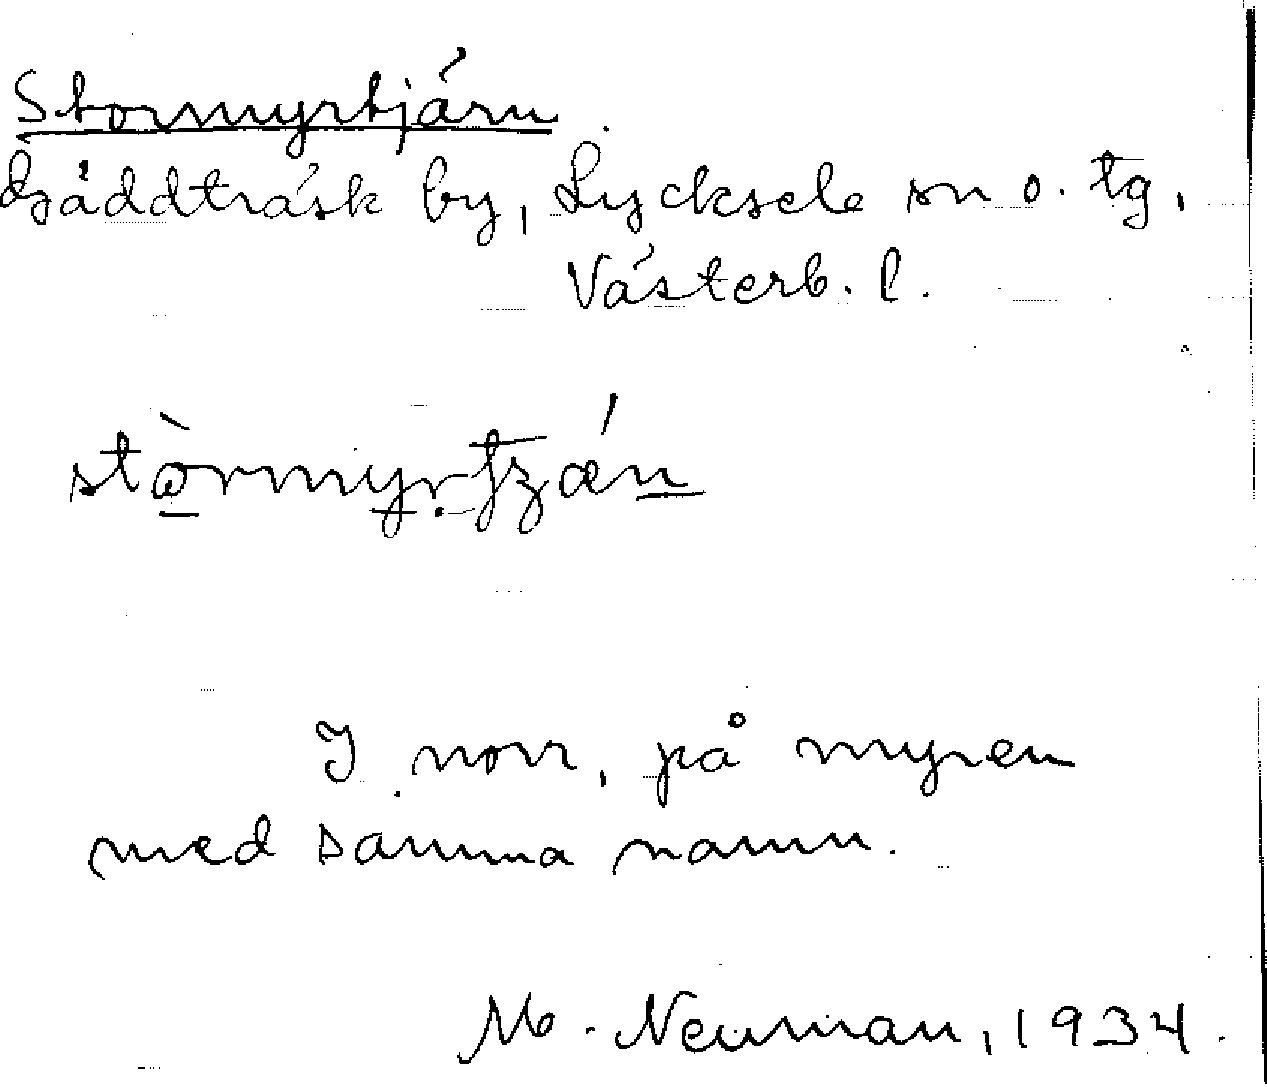 Stormyrtjärn
Gäddträsk by, Lycksele sn o. tg,
Västerb. l.
stòrmyrtjzǽn
I norr, på myren
med samma namn.
M. Neuman, 1934.